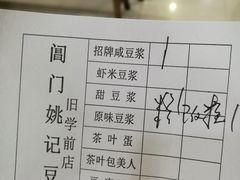 阊门姚记豆
旧学前店
招牌咸豆浆 1
虾米豆浆
甜豆浆
原味豆浆
茶叶蛋
茶叶包美人